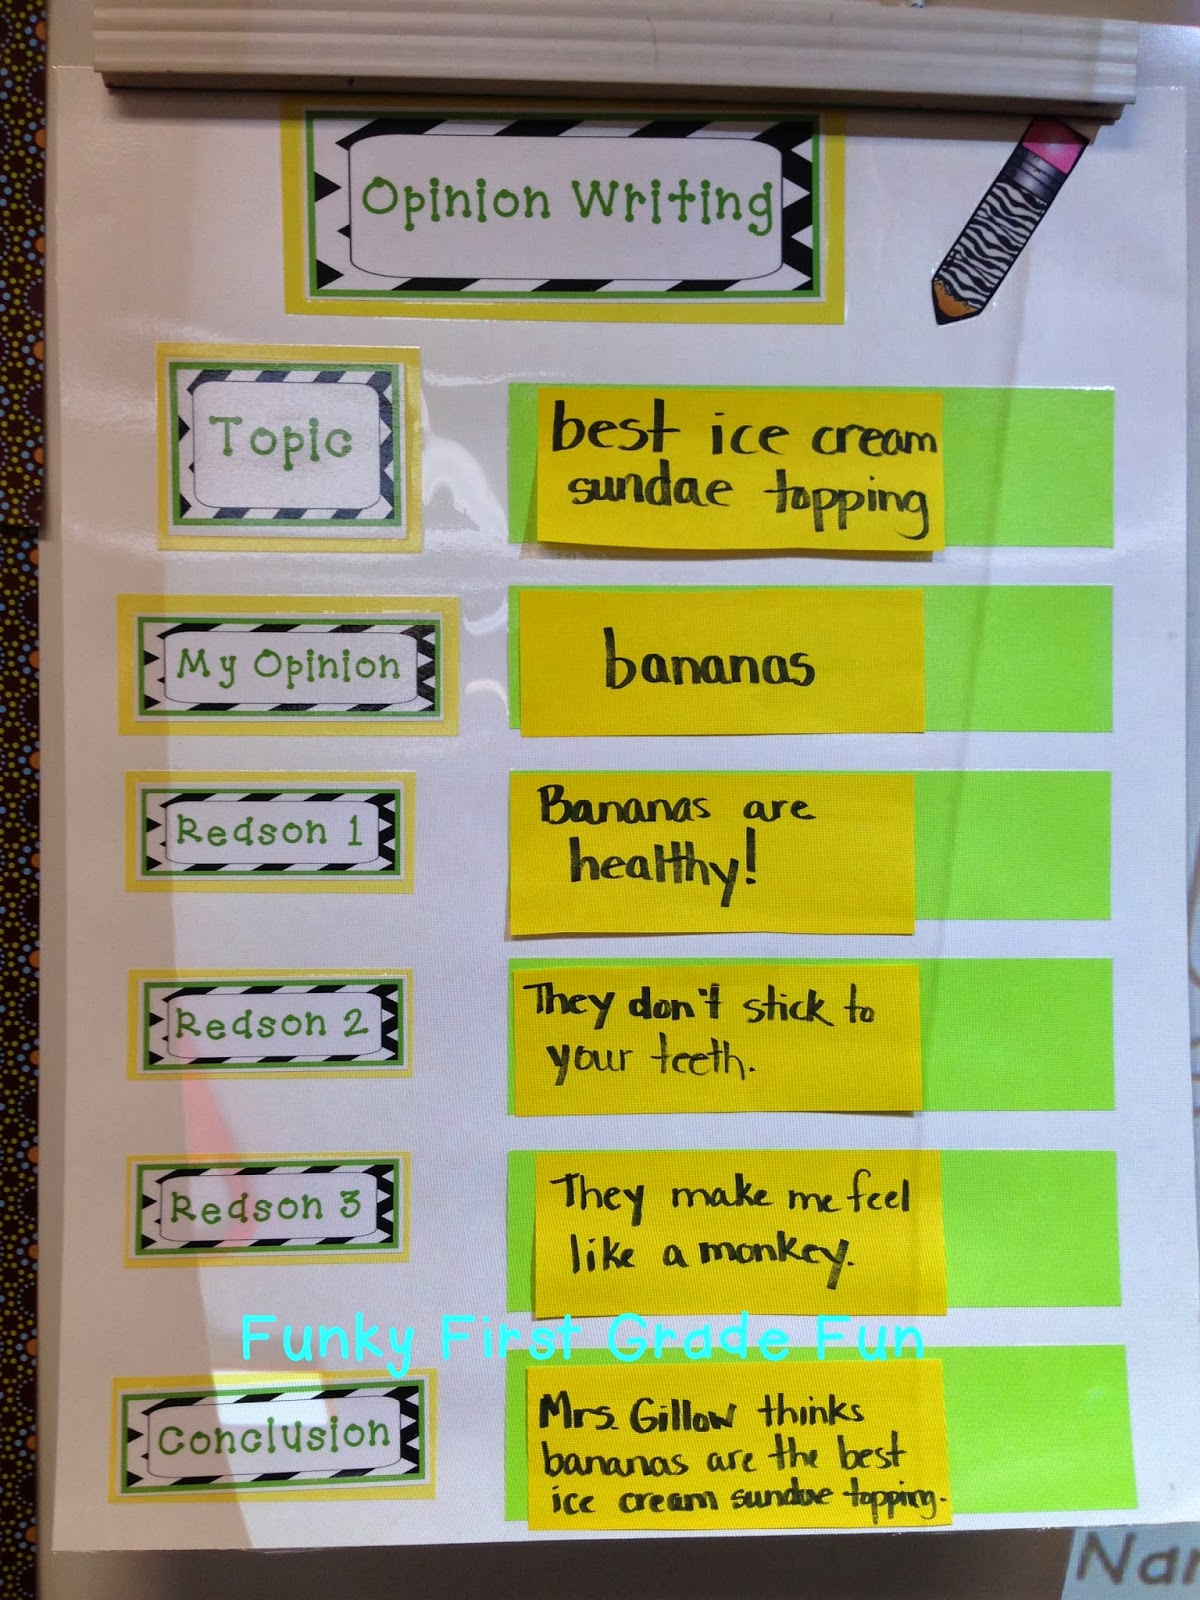 Opinion Writing
Topic
best ice cream
sundae topping
My Opinion
bananas
Reason 1
Bananas are
healthy!
Reason 2
They don't stick to
your teeth.
Reason 3
They make me feel
like a monkey.
Funky First Grade Fun
Conclusion
Mrs. Gillow thinks
bananas are the best
ice cream sundae topping.